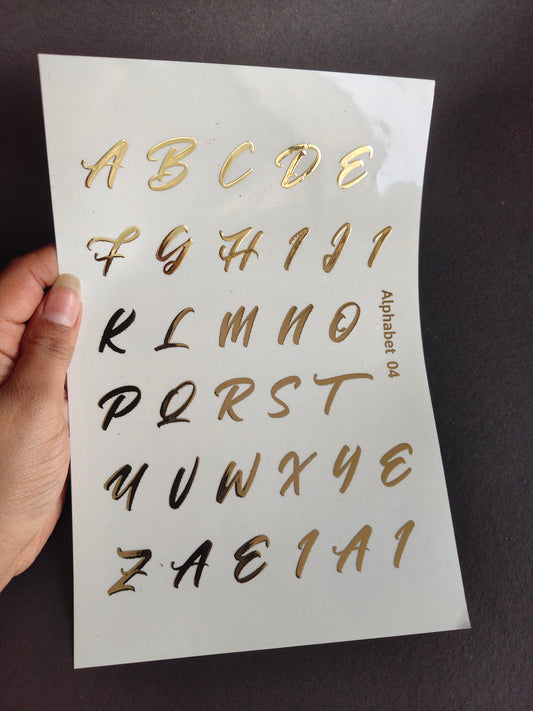 A B C D E
F G H I J I
K L M N O
P Q R S T
U V W X Y E
Z A E I A I
Alphabet 04